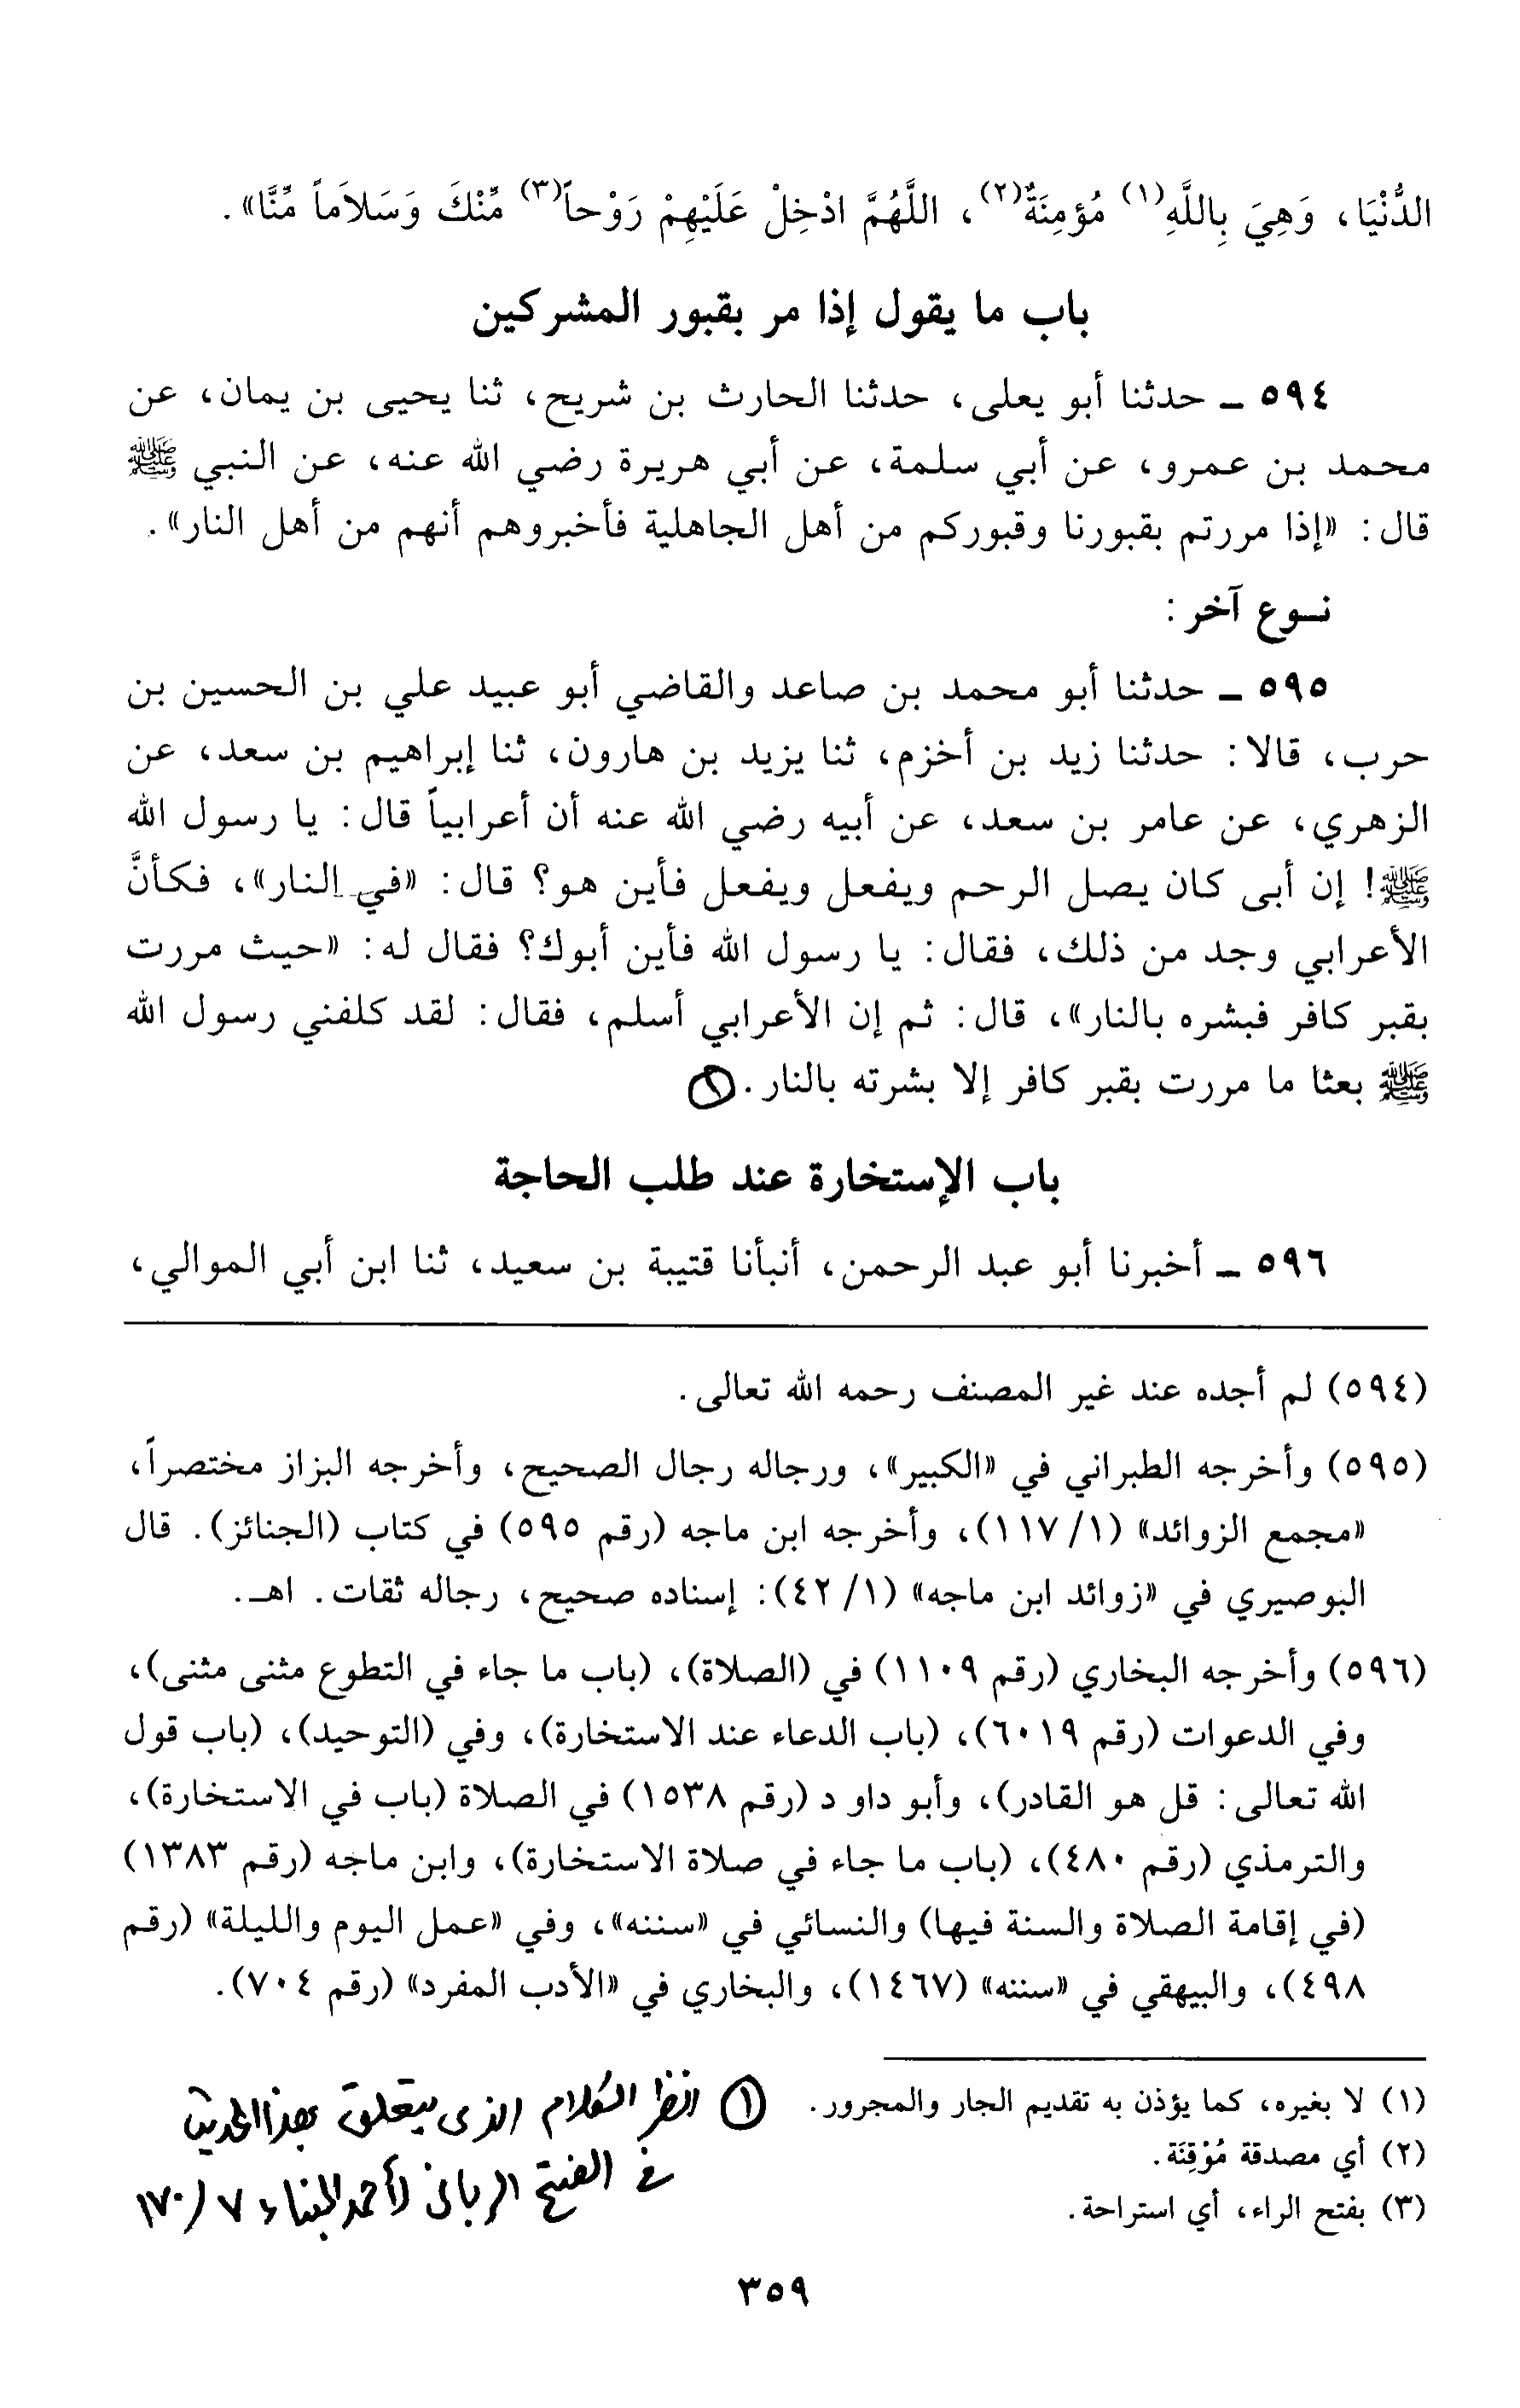 الدُّنْيَا، وَهِيَ بِاللَّهِ(١) مُؤمِنَةٌ(٢)، اللَّهُمَّ ادْخِلْ عَلَيْهِمْ رَوْحاً(٣) مِّنْكَ وَسَلاَماً مِّنَّا».
باب ما يقول إذا مر بقبور المشركين
٥٩٤ ـ حدثنا أبو يعلى، حدثنا الحارث بن شريح، ثنا يحيى بن يمان، عن
محمد بن عمرو، عن أبي سلمة، عن أبي هريرة رضي الله عنه، عن النبي ﷺ
قال: «إذا مررتم بقبورنا وقبوركم من أهل الجاهلية فأخبروهم أنهم من أهل النار».
نـوع آخر:
٥٩٥ ـ حدثنا أبو محمد بن صاعد والقاضي أبو عبيد علي بن الحسين بن
حرب، قالا: حدثنا زيد بن أخزم، ثنا يزيد بن هارون، ثنا إبراهيم بن سعد، عن
الزهري، عن عامر بن سعد، عن أبيه رضي الله عنه أن أعرابياً قال: يا رسول الله
ﷺ! إن أبى كان يصل الرحم ويفعل ويفعل فأين هو؟ قال: «في النار»، فكأنَّ
الأعرابي وجد من ذلك، فقال: يا رسول الله فأين أبوك؟ فقال له: «حيث مررت
بقبر كافر فبشره بالنار»، قال: ثم إن الأعرابي أسلم، فقال: لقد كلفني رسول الله
ﷺ بعثا ما مررت بقبر كافر إلا بشرته بالنار. (١)
باب الإستخارة عند طلب الحاجة
٥٩٦ ـ أخبرنا أبو عبد الرحمن، أنبأنا قتيبة بن سعيد، ثنا ابن أبي الموالي،
(٥٩٤) لم أجده عند غير المصنف رحمه الله تعالى.
(٥٩٥) وأخرجه الطبراني في «الكبير»، ورجاله رجال الصحيح، وأخرجه البزاز مختصراً،
«مجمع الزوائد» (١/ ١١٧)، وأخرجه ابن ماجه (رقم ٥٩٥) في كتاب (الجنائز). قال
البوصيري في «زوائد ابن ماجه» (١/ ٤٢): إسناده صحيح، رجاله ثقات. اهـ.
(٥٩٦) وأخرجه البخاري (رقم ١١٠٩) في (الصلاة)، (باب ما جاء في التطوع مثنى مثنى)،
وفي الدعوات (رقم ٦٠١٩)، (باب الدعاء عند الاستخارة)، وفي (التوحيد)، (باب قول
الله تعالى: قل هو القادر)، وأبو داو د (رقم ١٥٣٨) في الصلاة (باب في الاستخارة)،
والترمذي (رقم ٤٨٠)، (باب ما جاء في صلاة الاستخارة)، وابن ماجه (رقم ١٣٨٣)
(في إقامة الصلاة والسنة فيها) والنسائي في «سننه»، وفي «عمل اليوم والليلة» (رقم
٤٩٨)، والبيهقي في «سننه» (١٤٦٧)، والبخاري في «الأدب المفرد» (رقم ٧٠٤).
(١) لا بغيره، كما يؤذن به تقديم الجار والمجرور.
(٢) أي مصدقة مُوْقِنَة.
(٣) بفتح الراء، أي استراحة.
(١) انظر الكلام الذى يتعلق بهذا الحديث
في الفتح الربانى لأحمد البناء ٧/ ١٧٠
٣٥٩